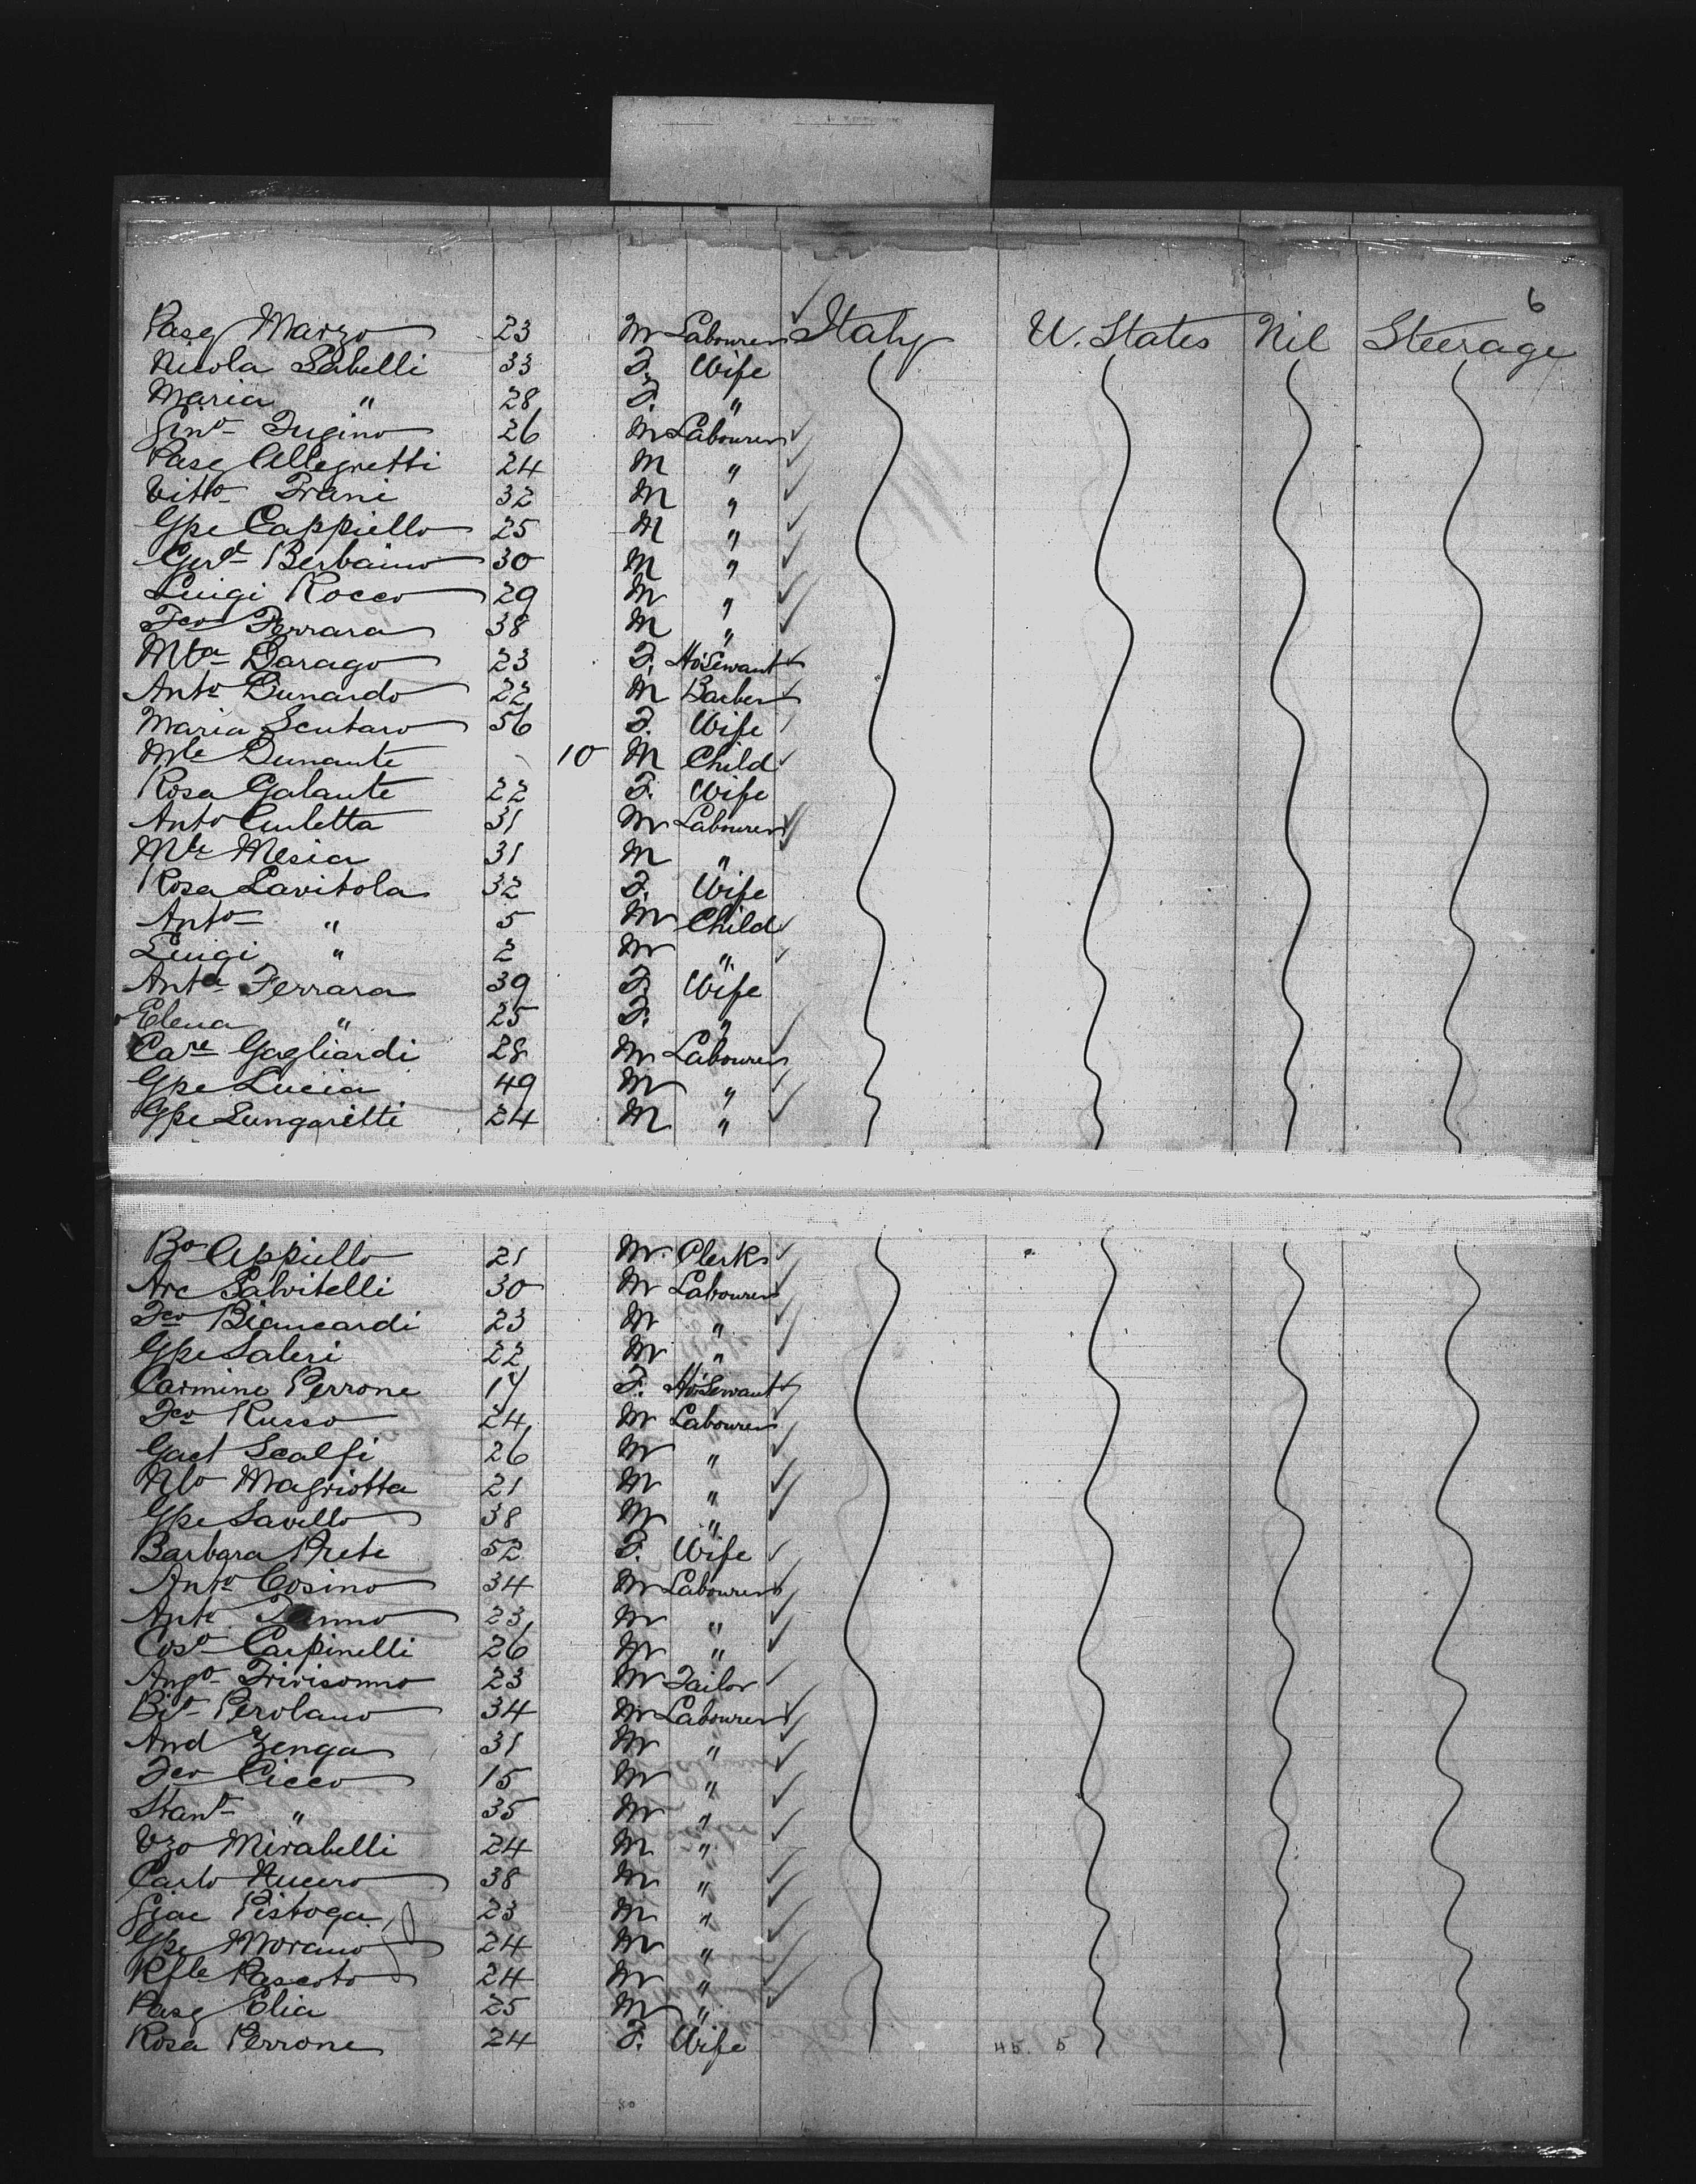 6
Pasq Marzo 23 M Labourer Italy U. States Nil Steerage
Nicola Labelli 33 F. Wife
Maria " 28 F. "
Gino Fugino 26 M Labourer
Pasq Allegretti 24 M "
Vitto Trani 32 M "
Gpe Cappiello 25 M "
Gerdo Berbaino 30 M "
Luigi Rocco 29 M "
Fco Ferrara 38 M "
Mta Darago 23 F. Ho Servant
Anto Dunardo 22 M Barber
Maria Scutaro 56 F. Wife
Mle Dunante 10 M Child
Rosa Galante 22 F. Wife
Anto Culetta 31 M Labourer
Mle Mesia 31 M "
Rosa Lavitola 32 F. Wife
Anto " 5 M Child
Luigi " 2 M "
Anta Ferrara 39 F. Wife
Elena " 25 F. "
Care Gagliardi 28 M Labourer
Gpe Lucia 49 M "
Gpe Lungaretti 24 M "
Bo Appiello 21 M Clerk
Arc Salvitelli 30 M Labourer
Fco Biancardi 23 M "
Gpe Saleri 22 M "
Carmine Perrone 17 F. Ho Servant
Fco Russo 24 M Labourer
Gaet Scalfi 26 M "
Nlo Magriotta 21 M "
Gpe Savello 38 M "
Barbara Prete 52 F. Wife
Anto Cosino 34 M Labourer
Anto 23 M "
Coso Carpinelli 26 M "
Ango Trivisonno 23 M Tailor
Bito Perolano 34 M Labourer
And Zenga 31 M "
Fco Cicco 15 M "
Stano " 35 M "
Vzo Mirabelli 24 M "
Carlo Nucero 38 M "
Giac Pistoga 23 M "
Gpe Morano 24 M "
Rfle Pascoto 24 M "
Pasq Elia 25 M "
Rosa Perrone 24 F. Wife